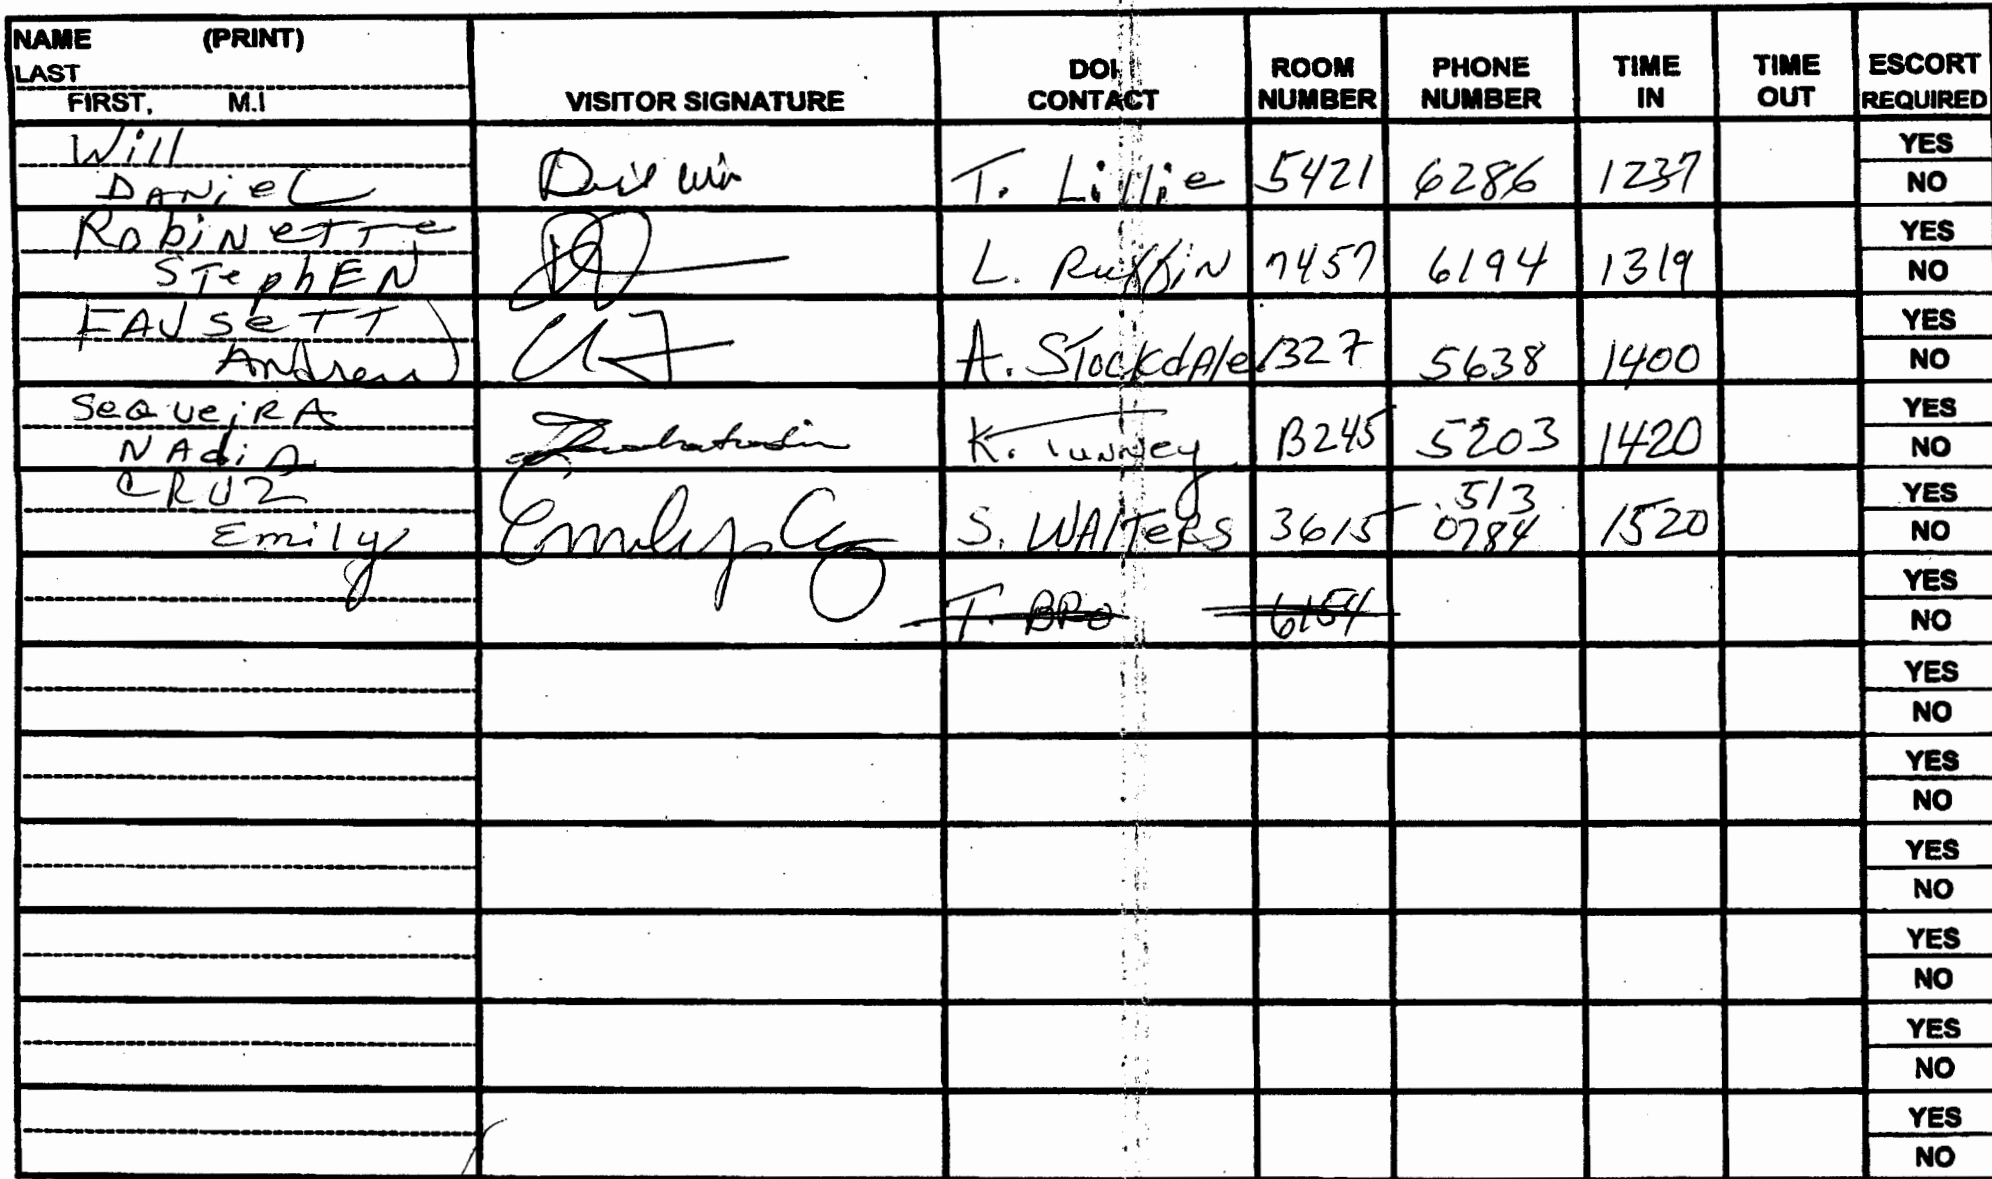 NAME (PRINT)
LAST
FIRST, M.I
VISITOR SIGNATURE
DOI CONTACT
ROOM NUMBER
PHONE NUMBER
TIME IN
TIME OUT
ESCORT REQUIRED
Will
DANieL
T. Lillie 5421 6286 1237
YES
NO
RobiNeTTe
STephEN
L. RuffiN 7457 6194 1319
YES
NO
FAUSeTT
Andrew
A. STockdAle 1327 5638 1400
YES
NO
SeQueiRA
NAdiA
K. TuNNey B245 5203 1420
YES
NO
CRUZ
Emily
Emily Cruz
S. WAlTeRS 3615 513 0784 1520
YES
NO
T. BRo 6154
YES
NO
YES
NO
YES
NO
YES
NO
YES
NO
YES
NO
YES
NO